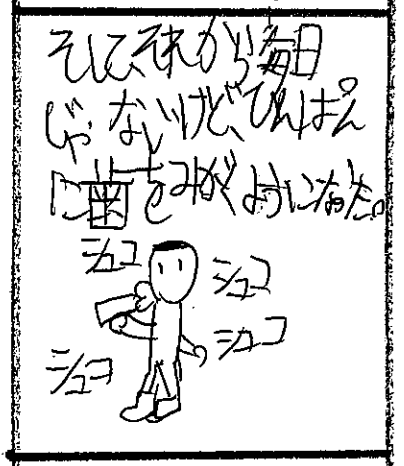 そして、それから毎日
じゃないけど、ひんぱん
に歯をみがくようになった。
シュコ
シュコ
シュコ
シュコ